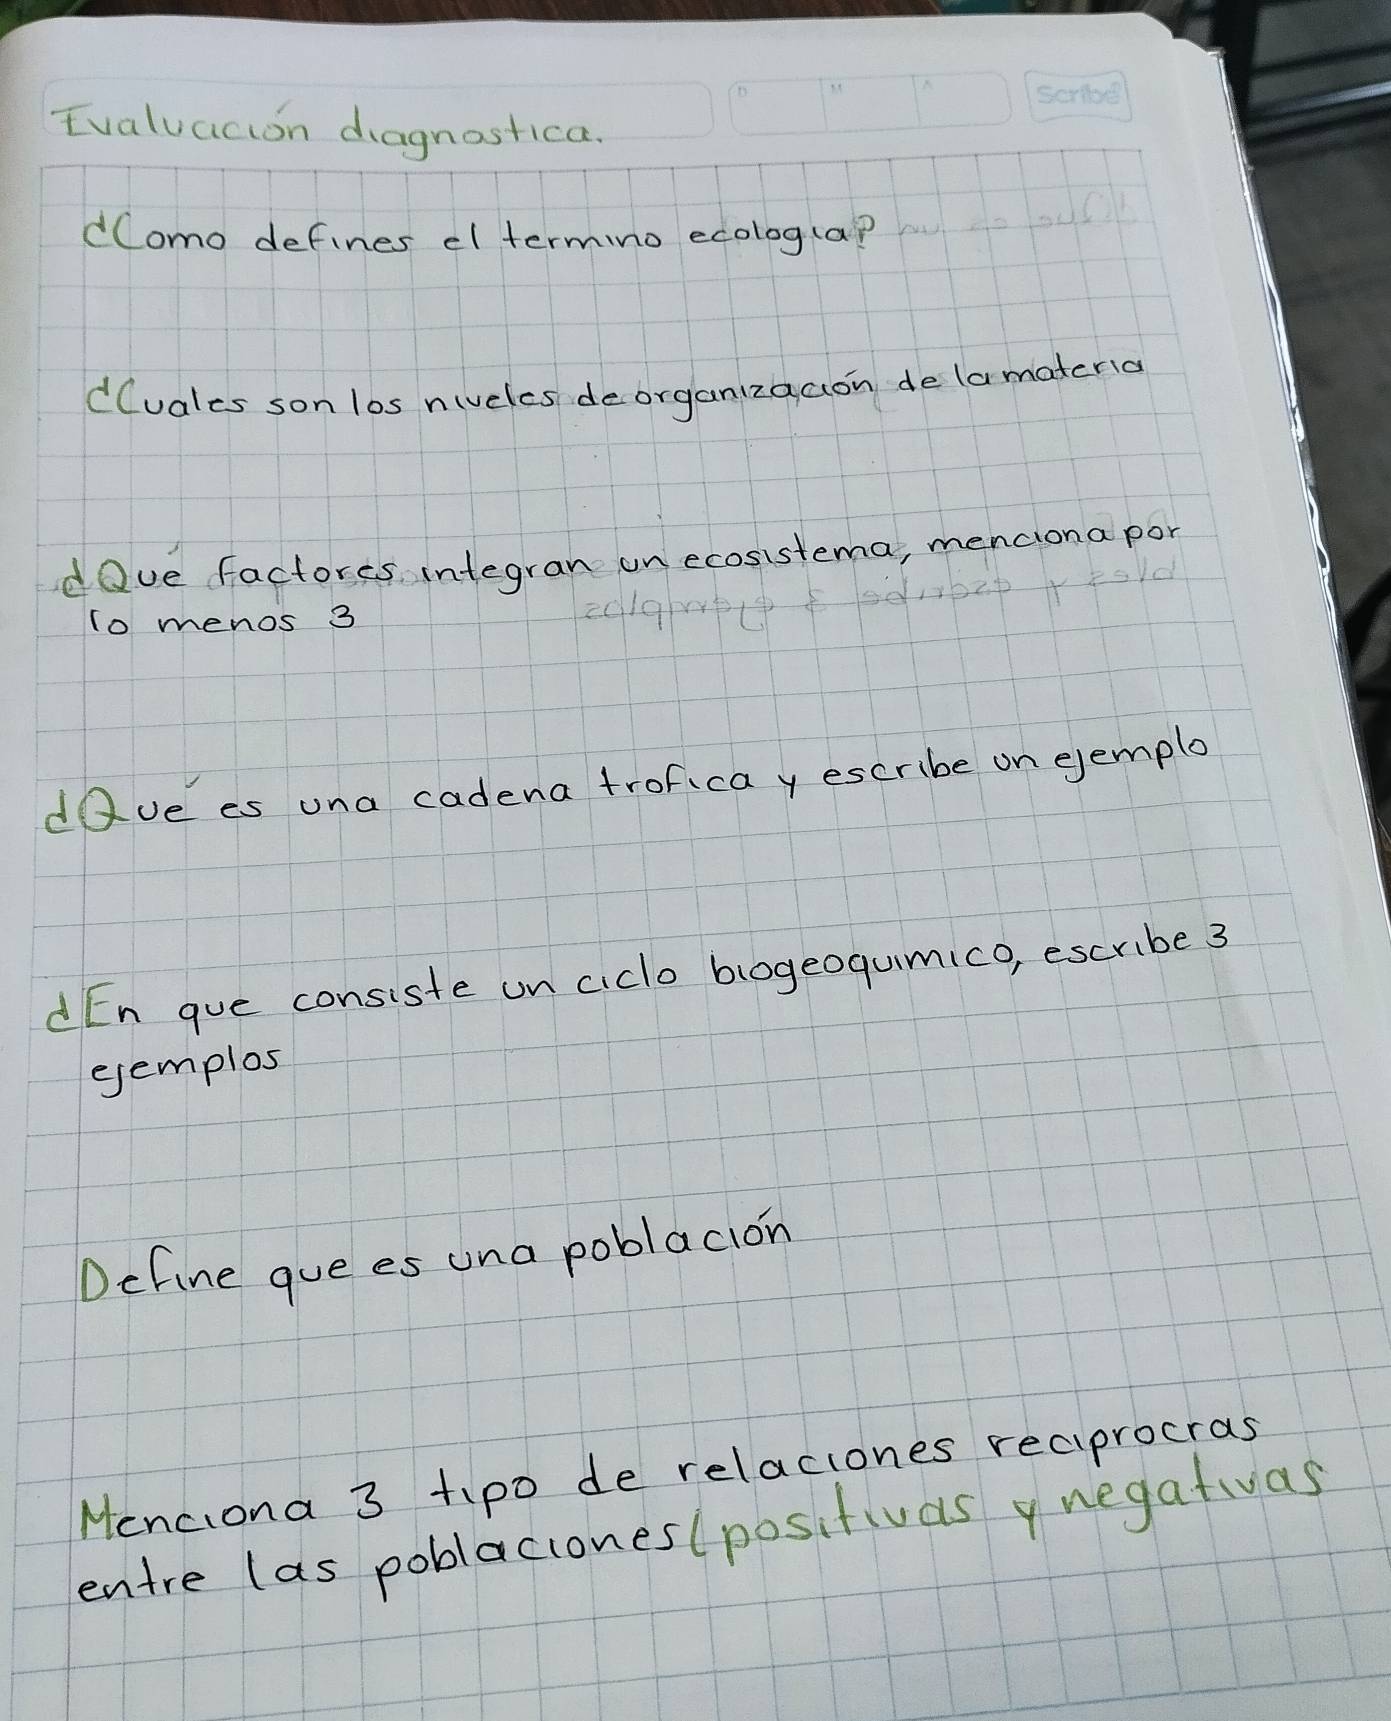 Evaluación diagnostica.
D M A
Scribe
¿Como defines el termino ecologia?
¿Cuales son los niveles de organización de la materia
¿Qué factores integran un ecosistema, menciona por
lo menos 3
¿Qué es una cadena trofica y escribe un ejemplo
¿En que consiste un ciclo biogeoquimico, escribe 3
ejemplos
Define que es una población
Menciona 3 tipo de relaciones reciprocras
entre las poblaciones (positivas y negativas